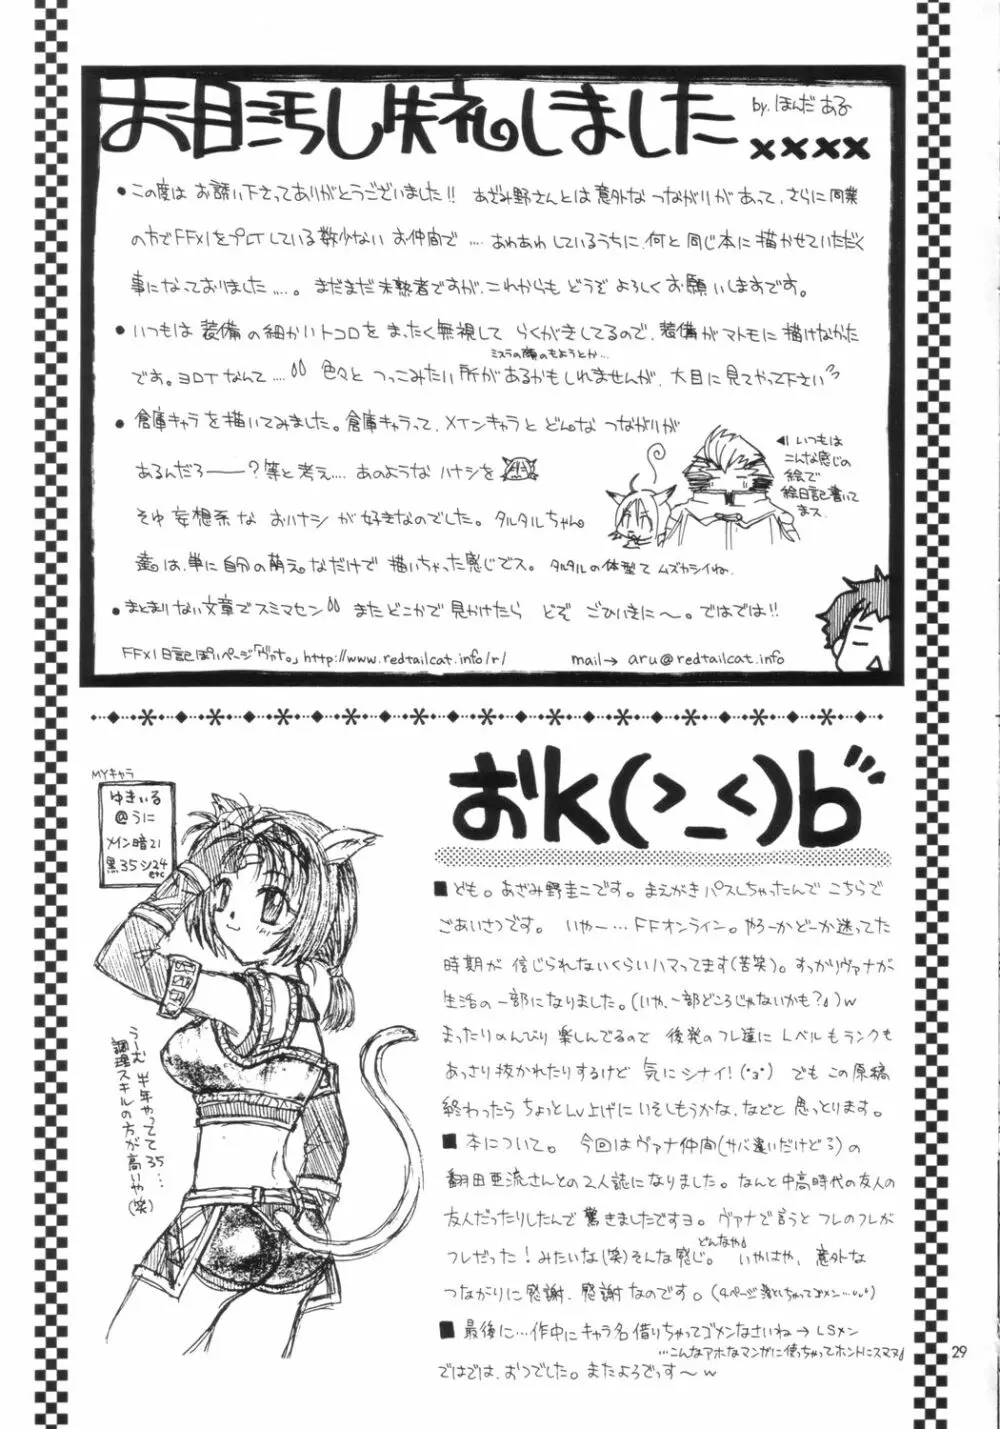 お目汚し失礼しました
by. ほんだ ある
××××
●この度は お誘い下さってありがとうございました!! あざみ野さんとは意外な つながりがあって、さらに同業
の方でFFXIをプレイしている数少ない お仲間で …. あわあわしているうちに、何と同じ本に描かせていただく
事になっておりました….。 まだまだ未熟者ですが、これからも どうぞ よろしく お願いしますです。
●いつもは 装備の細かいトコロを まったく無視して らくがきしてるので、装備がマトモに描けなかった
ミスラの顔のもようとか…
です。ヨロイなんて…. 色々と つっこみたい所が あるかもしれませんが、大目に見てやって下さい
●倉庫キャラを描いてみました。倉庫キャラって、メインキャラと どんな つながりが
あるんだろ――? 等と考え…. あのような ハナシを
そゆ 妄想系な おハナシが好きなのでした。タルタルちゃん
達は、単に自分の萌え。なだけで 描いちゃった感じでス。タルタルの体型て ムズカシイね。
◀いつもは
こんな感じの
絵で
絵日記書いて
まス.
●まとまりない文章でスミマセン またどこかで見かけたら どぞ ごひいきに〜。ではでは!!
FFXI 日記ぽいページ「ヴァナ。」http://www.redtailcat.info/r/ mail→ aru@redtailcat.info
MYキャラ
ゆきいる
@うに
メイン暗21
黒35シ24
etc
うーむ 半年やってて35…
調理スキルの方が高いや(笑)
おk(>_<)b
■ども。あざみ野圭二です。まえがきパスしちゃったんで こちらで
ごあいさつです。 いやー…FFオンライン。やろーかどーか迷ってた
時期が 信じられないくらいハマってます(苦笑)。すっかりヴァナが
生活の一部になりました。(いや、一部どころじゃないかも?♪)w
まったりのんびり 楽しんでるので 後発のフレ達に Lベルもランクも
あっさり抜かれたりするけど 気にシナイ!(・з・) でも この原稿
終わったら ちょっとLv上げに いそしもうかな、などと 思っとります。
■本について。 今回はヴァナ仲間(サバ違いだけどる)の
翻田亜流さんとの2人誌になりました。なんと中高時代の友人の
友人だったりしたんで 驚きましたですヨ。ヴァナで言うと フレのフレが
どんなや♪
フレだった!みたいな(笑)そんな感じ。いやはや、意外な
つながりに感謝、感謝なのです。(4ページ落としちゃってゴメン…)
■最後に…作中にキャラ名 借りちゃってゴメンなさいね→LSメン
…こんなアホなマンガに使っちゃってホントにスマヌ♪
ではでは、おつでした。またよろでっす〜w
29